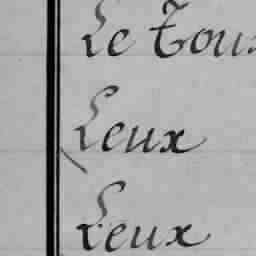 Le Tou
Leux
Leux